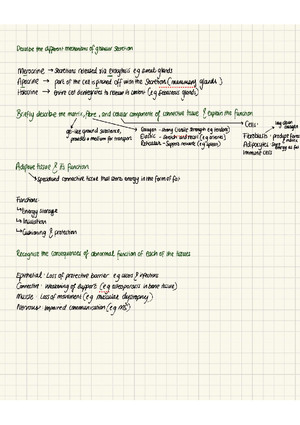 Describe the different mechanisms of glandular secretion
Merocrine → Secretions released via Exocytosis eg sweat glands
Apocrine → part of the cell is pinched off with the secretion (mammary glands)
Holocrine → Entire cell disintegrates to release its content (eg sebaceous glands)
Briefly describe the matrix, fibre, and cellular component of connective tissue & explain the function
gel-like ground substance,
provides a medium for transport
Collagen - strong (tensile strength eg tendon)
Elastic - stretch and recoil (eg arteries)
Reticular - Support network (eg spleen)
Cells:
Fibroblasts - product fibres
Adipocytes
Immune cells
Adipose tissue & its function
↳ specialised connective tissue that stores energy in the form of fat
Functions:
↳ Energy storage
↳ Insulation
↳ Cushioning & protection
Recognise the consequences of abnormal function of each of the tissues
Epithelial - Loss of protective barrier eg ulcers & infections
Connective - Weakening of support (eg osteoporosis in bone tissue)
Muscle - Loss of movement (eg muscular dystrophy)
Nervous - Impaired communication (eg MS)